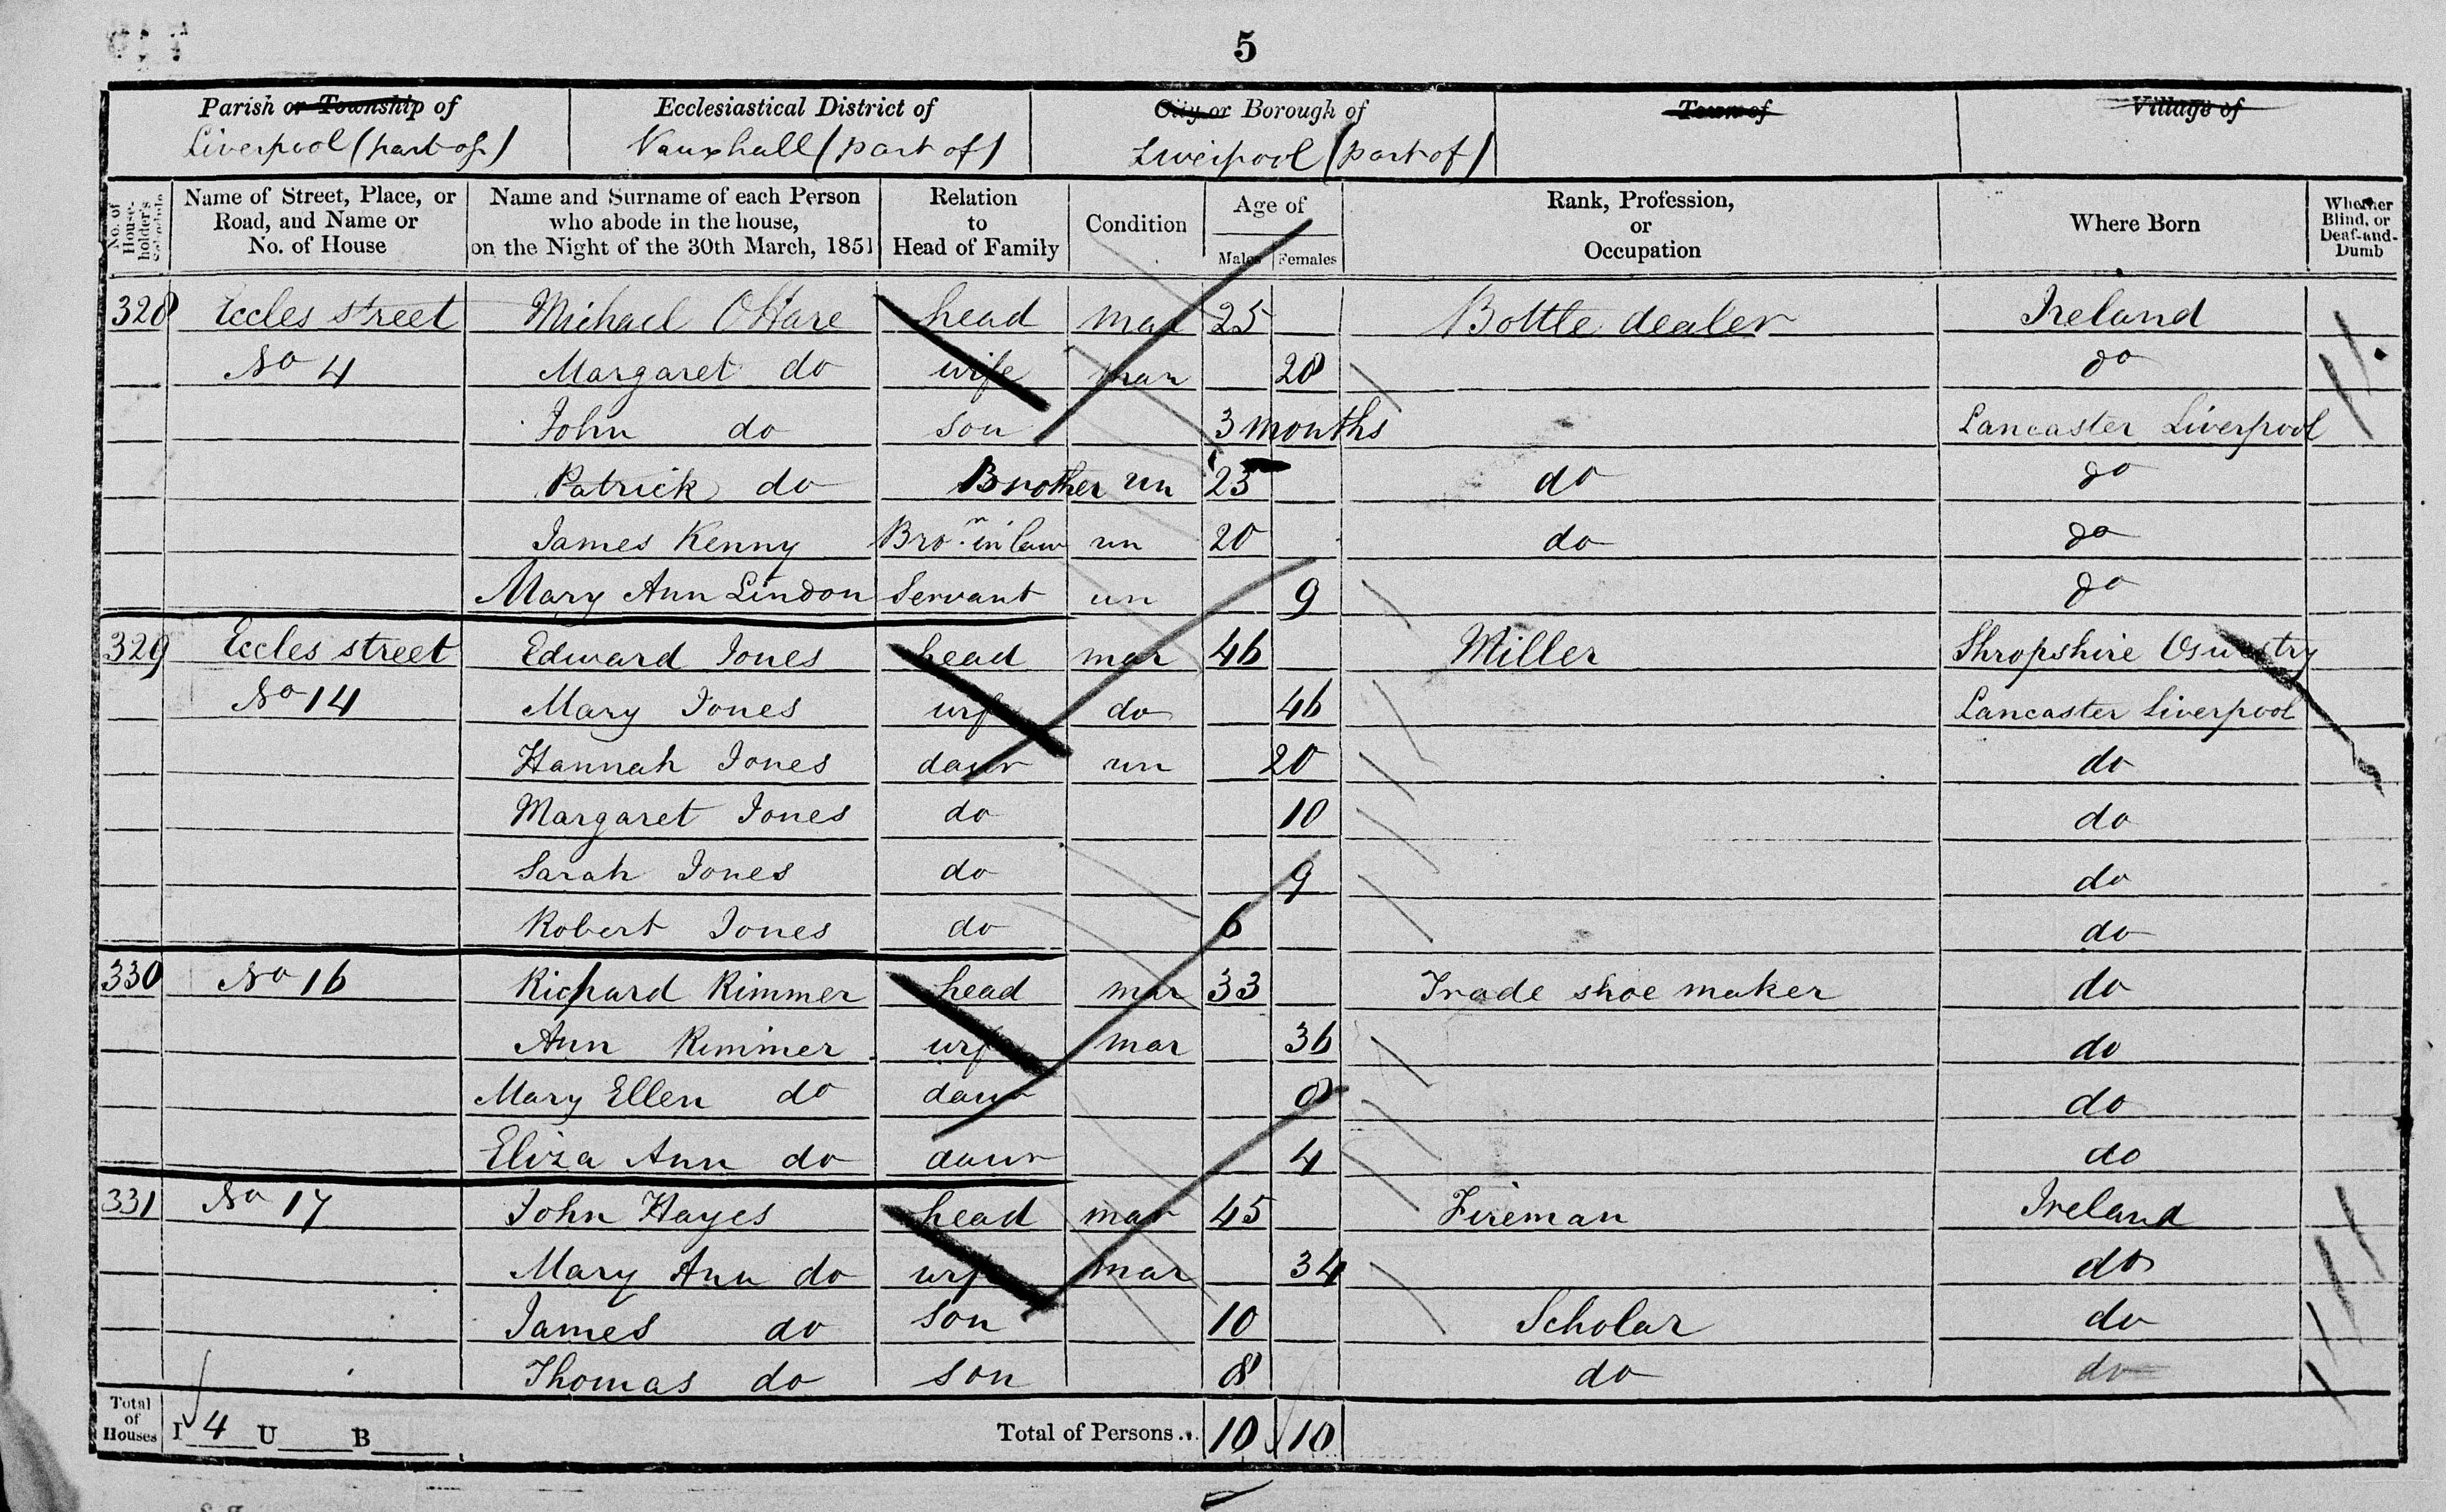 5
Parish or Township of Ecclesiastical District of City or Borough of Town of Village of
Liverpool (part of) Vauxhall (part of) Liverpool (part of)
No. of House-holder's Schedule Name of Street, Place, or Road, and Name or No. of House Name and Surname of each Person who abode in the house, on the Night of the 30th March, 1851 Relation to Head of Family Condition Age of Males Females Rank, Profession, or Occupation Where Born Whether Blind, or Deaf-and-Dumb
328 Eccles street Michael OHare head mar 25 Bottle dealer Ireland
No 4 Margaret do wife mar 28 do
John do son 3 months Lancaster Liverpool
Patrick do Brother un 23 do do
James Kenny Bro. in law un 20 do do
Mary Ann Lindon Servant un 9 do
329 Eccles street Edward Jones head mar 46 Miller Shropshire Oswestry
No 14 Mary Jones wife do 46 Lancaster Liverpool
Hannah Jones daur un 20 do
Margaret Jones do 10 do
Sarah Jones do 9 do
Robert Jones do 6 do
330 No 16 Richard Rimmer head mar 33 Trade shoe maker do
Ann Rimmer wife mar 36 do
Mary Ellen do daur 8 do
Eliza Ann do daur 4 do
331 No 17 John Hayes head mar 45 Fireman Ireland
Mary Ann do wife mar 34 do
James do son 10 Scholar do
Thomas do son 8 do do
Total of Houses I 4 U B Total of Persons.. 10 10